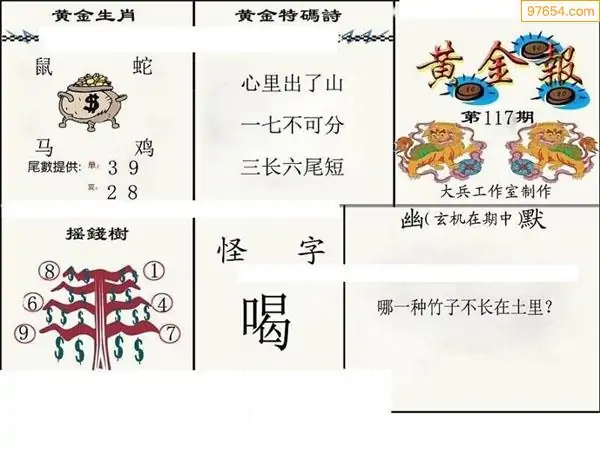 97654.com
黄金生肖
鼠 蛇
$
马 鸡
尾數提供: 单: 3 9
双: 2 8
黄金特碼詩
心里出了山
一七不可分
三长六尾短
黄金報
第117期
大兵工作室制作
摇錢樹
⑧ ①
⑥ ④
⑨ ⑦
$ $ $ $ $ $ $ $ $ $
怪 字
喝
幽(玄机在期中)默
哪一种竹子不长在土里?